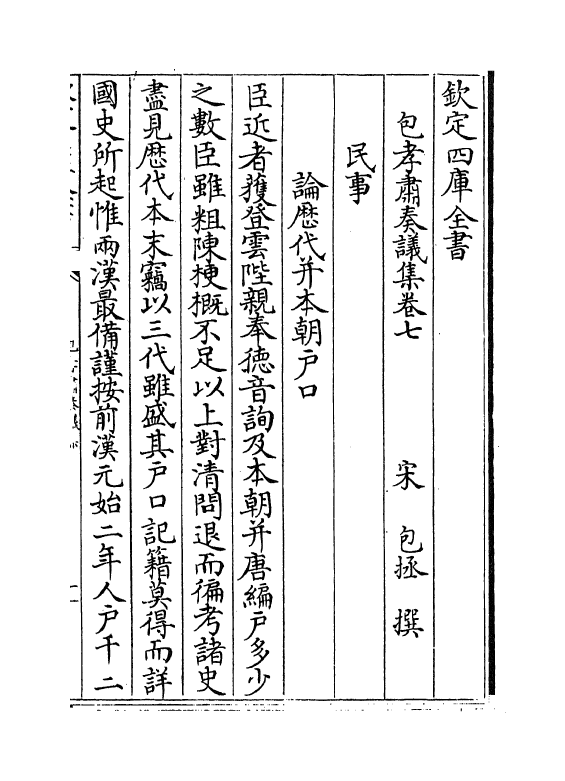 欽定四庫全書
包孝肅奏議集卷七
宋 包拯 撰
民事
論歴代并本朝戸口
臣近者獲登雲陛親奉德音詢及本朝并唐編戸多少
之數臣雖粗陳梗概不足以上對清問退而徧考諸史
盡見歴代本末竊以三代雖盛其戸口記籍莫得而詳
國史所起惟兩漢最備謹按前漢元始二年人戸千二